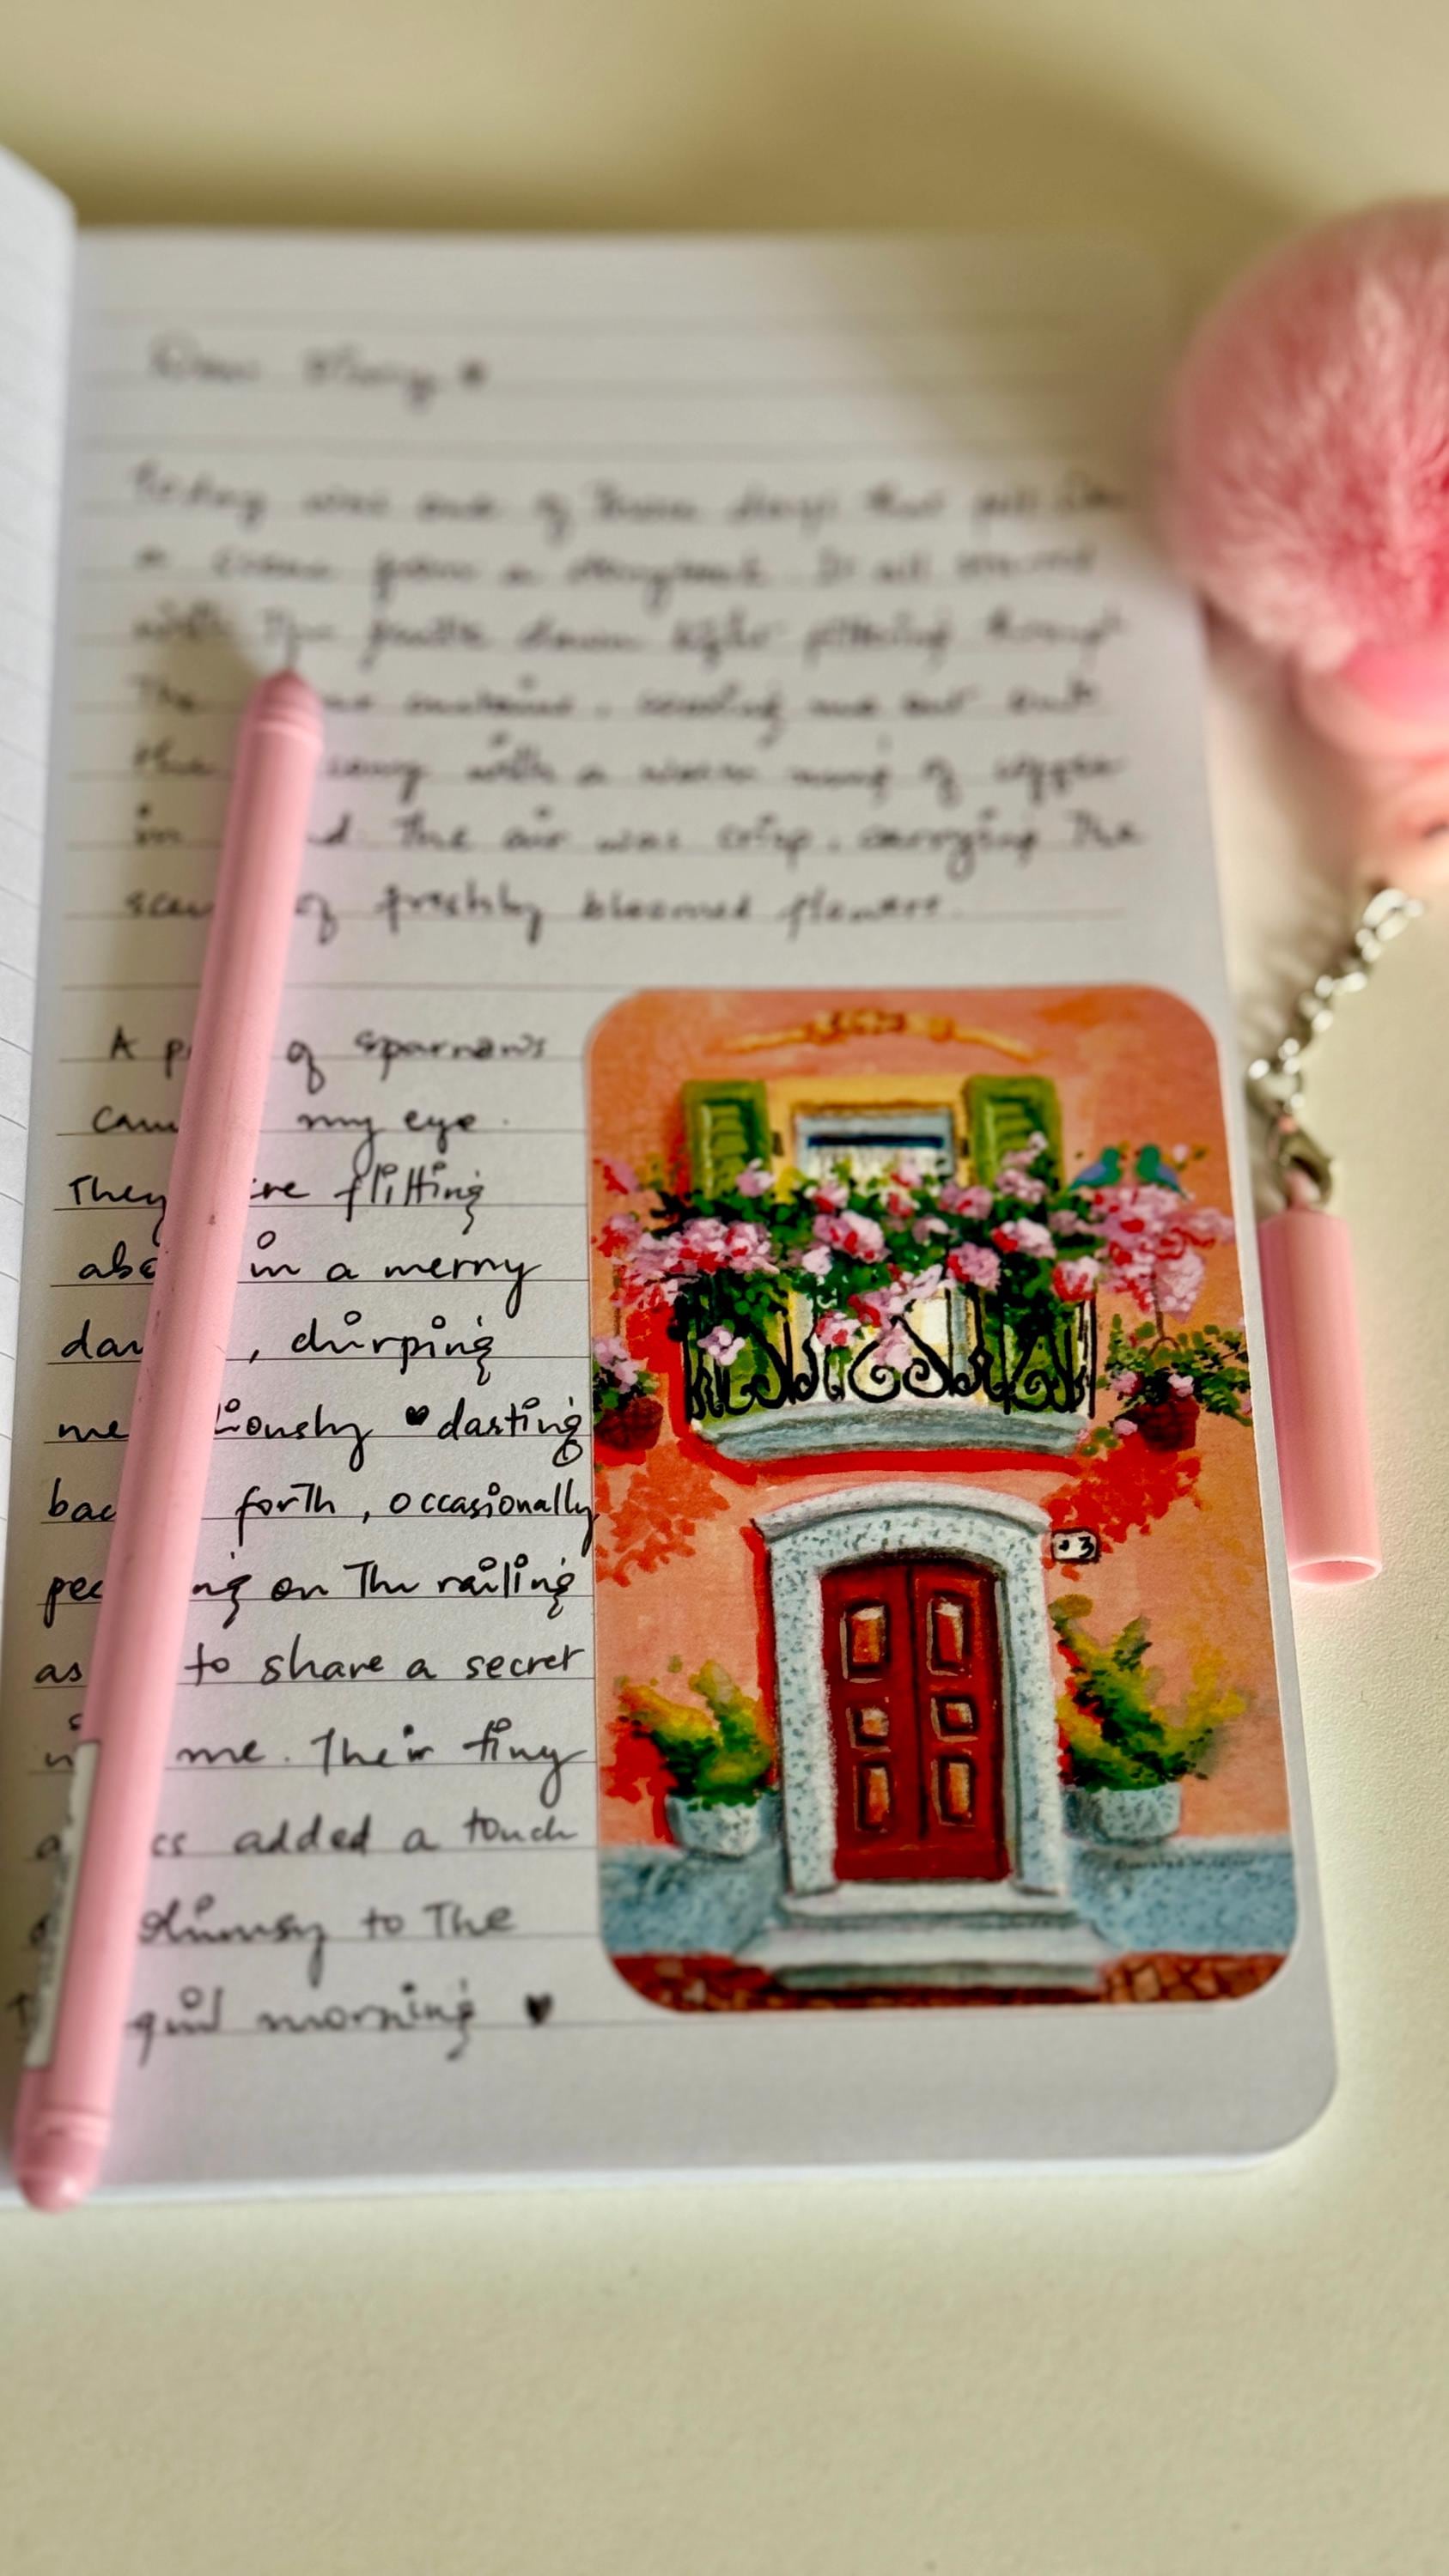 Dear Diary
Today was one of those days that felt like
a scene from a storybook. It all started
with the gentle dawn light filtering through
the curtains, coaxing me out onto
the with a warm mug of coffee
in The air was crisp, carrying The
of freshly bloomed flowers.
A of sparrows
my eye.
They flitting
in a merry
, chirping
♥ darting
forth, occasionally
on The railing
as to share a secret
me. Their tiny
added a touch
whimsy to The
morning ♥
3